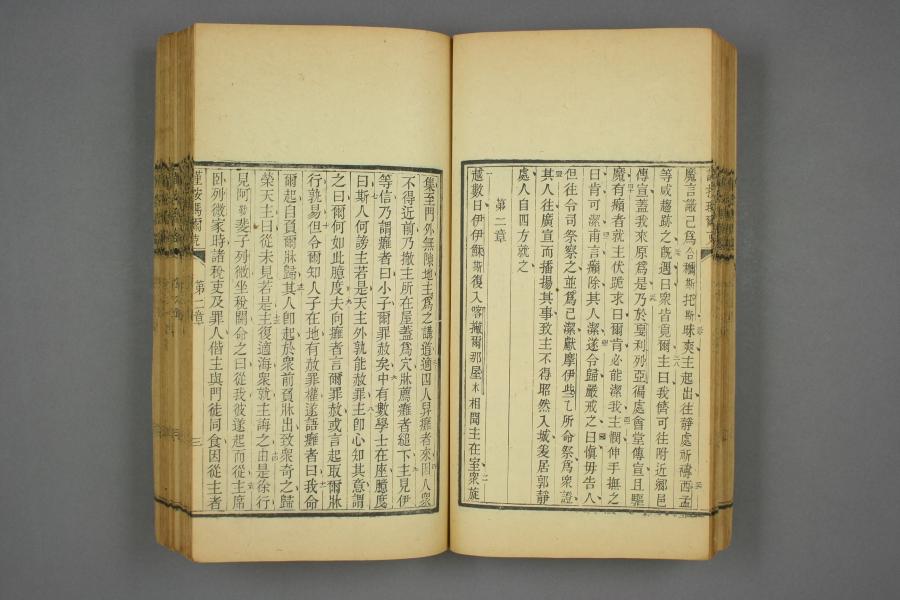 魔言識已為
味爽主起出往靜處祈禱西孟
等咸趨跡之旣遇曰衆皆覓爾主曰我儕可往附近鄕邑
傳宣蓋我來原為是乃於戛利列亞徧處會堂傳宣且驅
魔有癩者就主伏跪求曰爾肯必能潔我主憫伸手撫之
曰肯可潔甫言癩除其人潔遂令歸嚴戒之曰愼毋告人
但往令司祭察之並爲己潔獻摩伊些乙所命祭爲衆證
其人往廣宣而播揚其事致主不得昭然入城爰居郭靜
處人自四方就之
第二章
越數日伊伊穌斯復入喀撇爾那屋木相聞主在室衆旋
集至門外無隙地主爲之講道適四人舁癱者來因人衆
不得近前乃撤主所在屋蓋爲穴牀薦癱者縋下主見伊
等信乃謂癱者曰小子爾罪赦矣中有數學士在座臆度
曰斯人何謗主若是天主外孰能赦罪主卽心知其意謂
之曰爾何如此臆度夫向癱者言爾罪赦或言起取爾牀
行孰易但令爾知人子在地有赦罪權遂語癱者曰我命
爾起自負爾牀歸其人卽起於衆前負牀出致衆奇之歸
榮天主曰從未見若是主復適海衆就主誨之由是徐行
見阿勒斐子列微坐稅關命之曰從我彼遂起而從主席
臥列微家時諸稅吏及罪人偕主與門徒同食因從主者
第二章
三